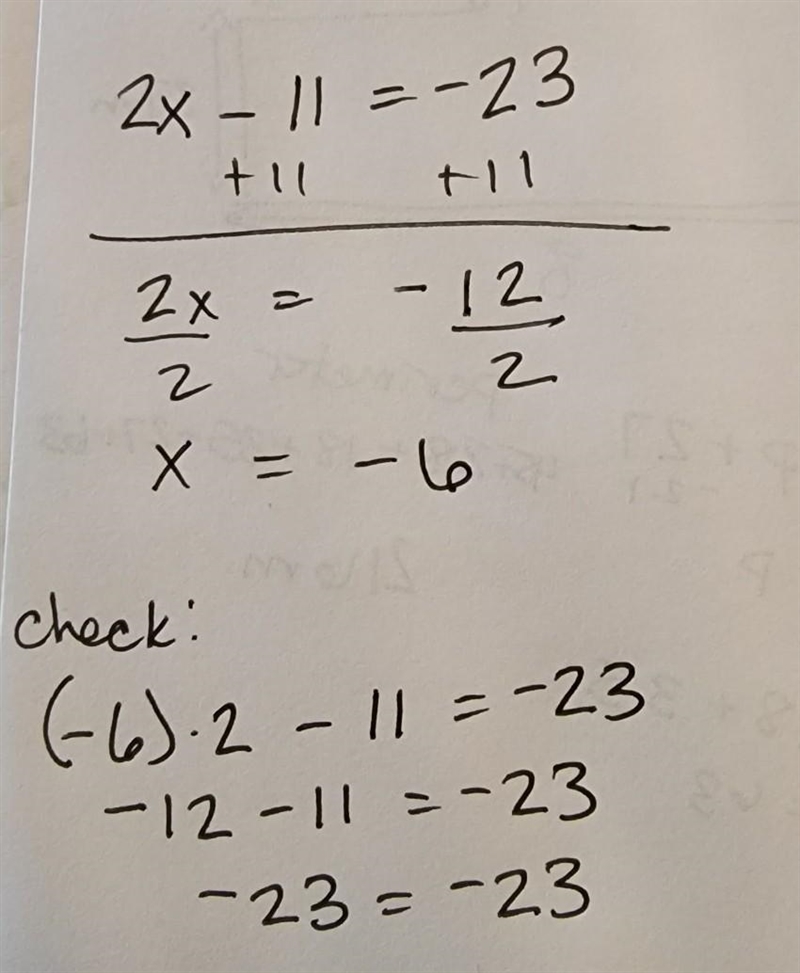 2x - 11 = -23
+11 +11
2x = -12
2 2
x = -6
check:
(-6)·2 - 11 = -23
-12 - 11 = -23
-23 = -23